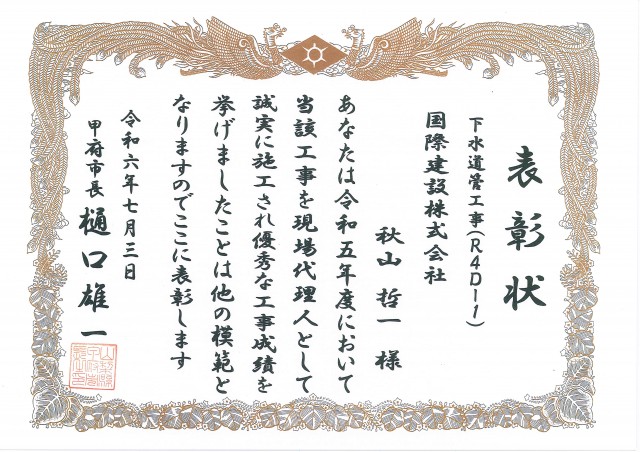 表彰状
下水道管工事(R4D11)
国際建設株式会社
秋山 哲一 様
あなたは令和五年度において
当該工事を現場代理人として
誠実に施工され優秀な工事成績を
挙げましたことは他の模範と
なりますのでここに表彰します
令和六年七月三日
甲府市長 樋口雄一